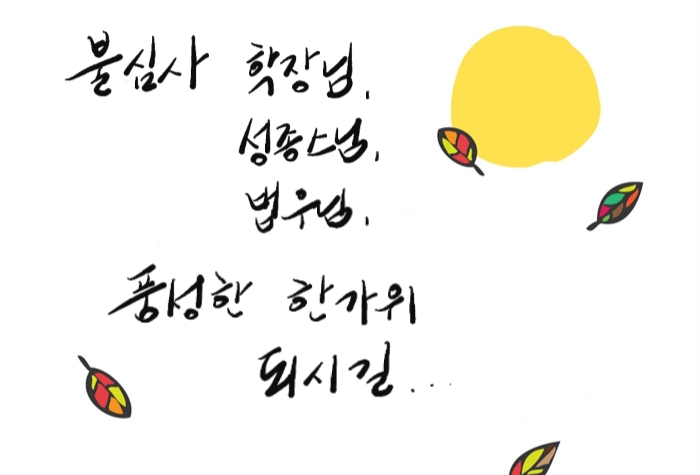 불심사 학장님,
성종스님,
법우님,
풍성한 한가위
되시길...